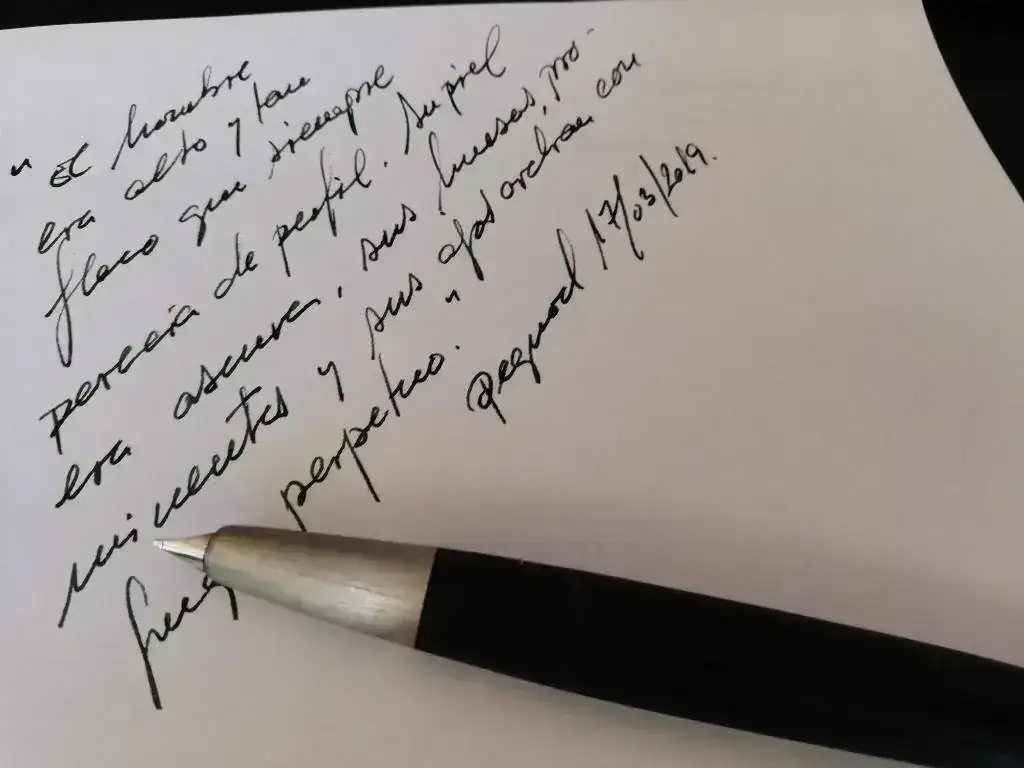 "El hombre
era alto y tan
flaco que siempre
parecía de perfil. Su piel
era oscura, sus huesos, pro-
minentes y sus ojos ardían con
perpetuo."
Pequod 17/03/2019.